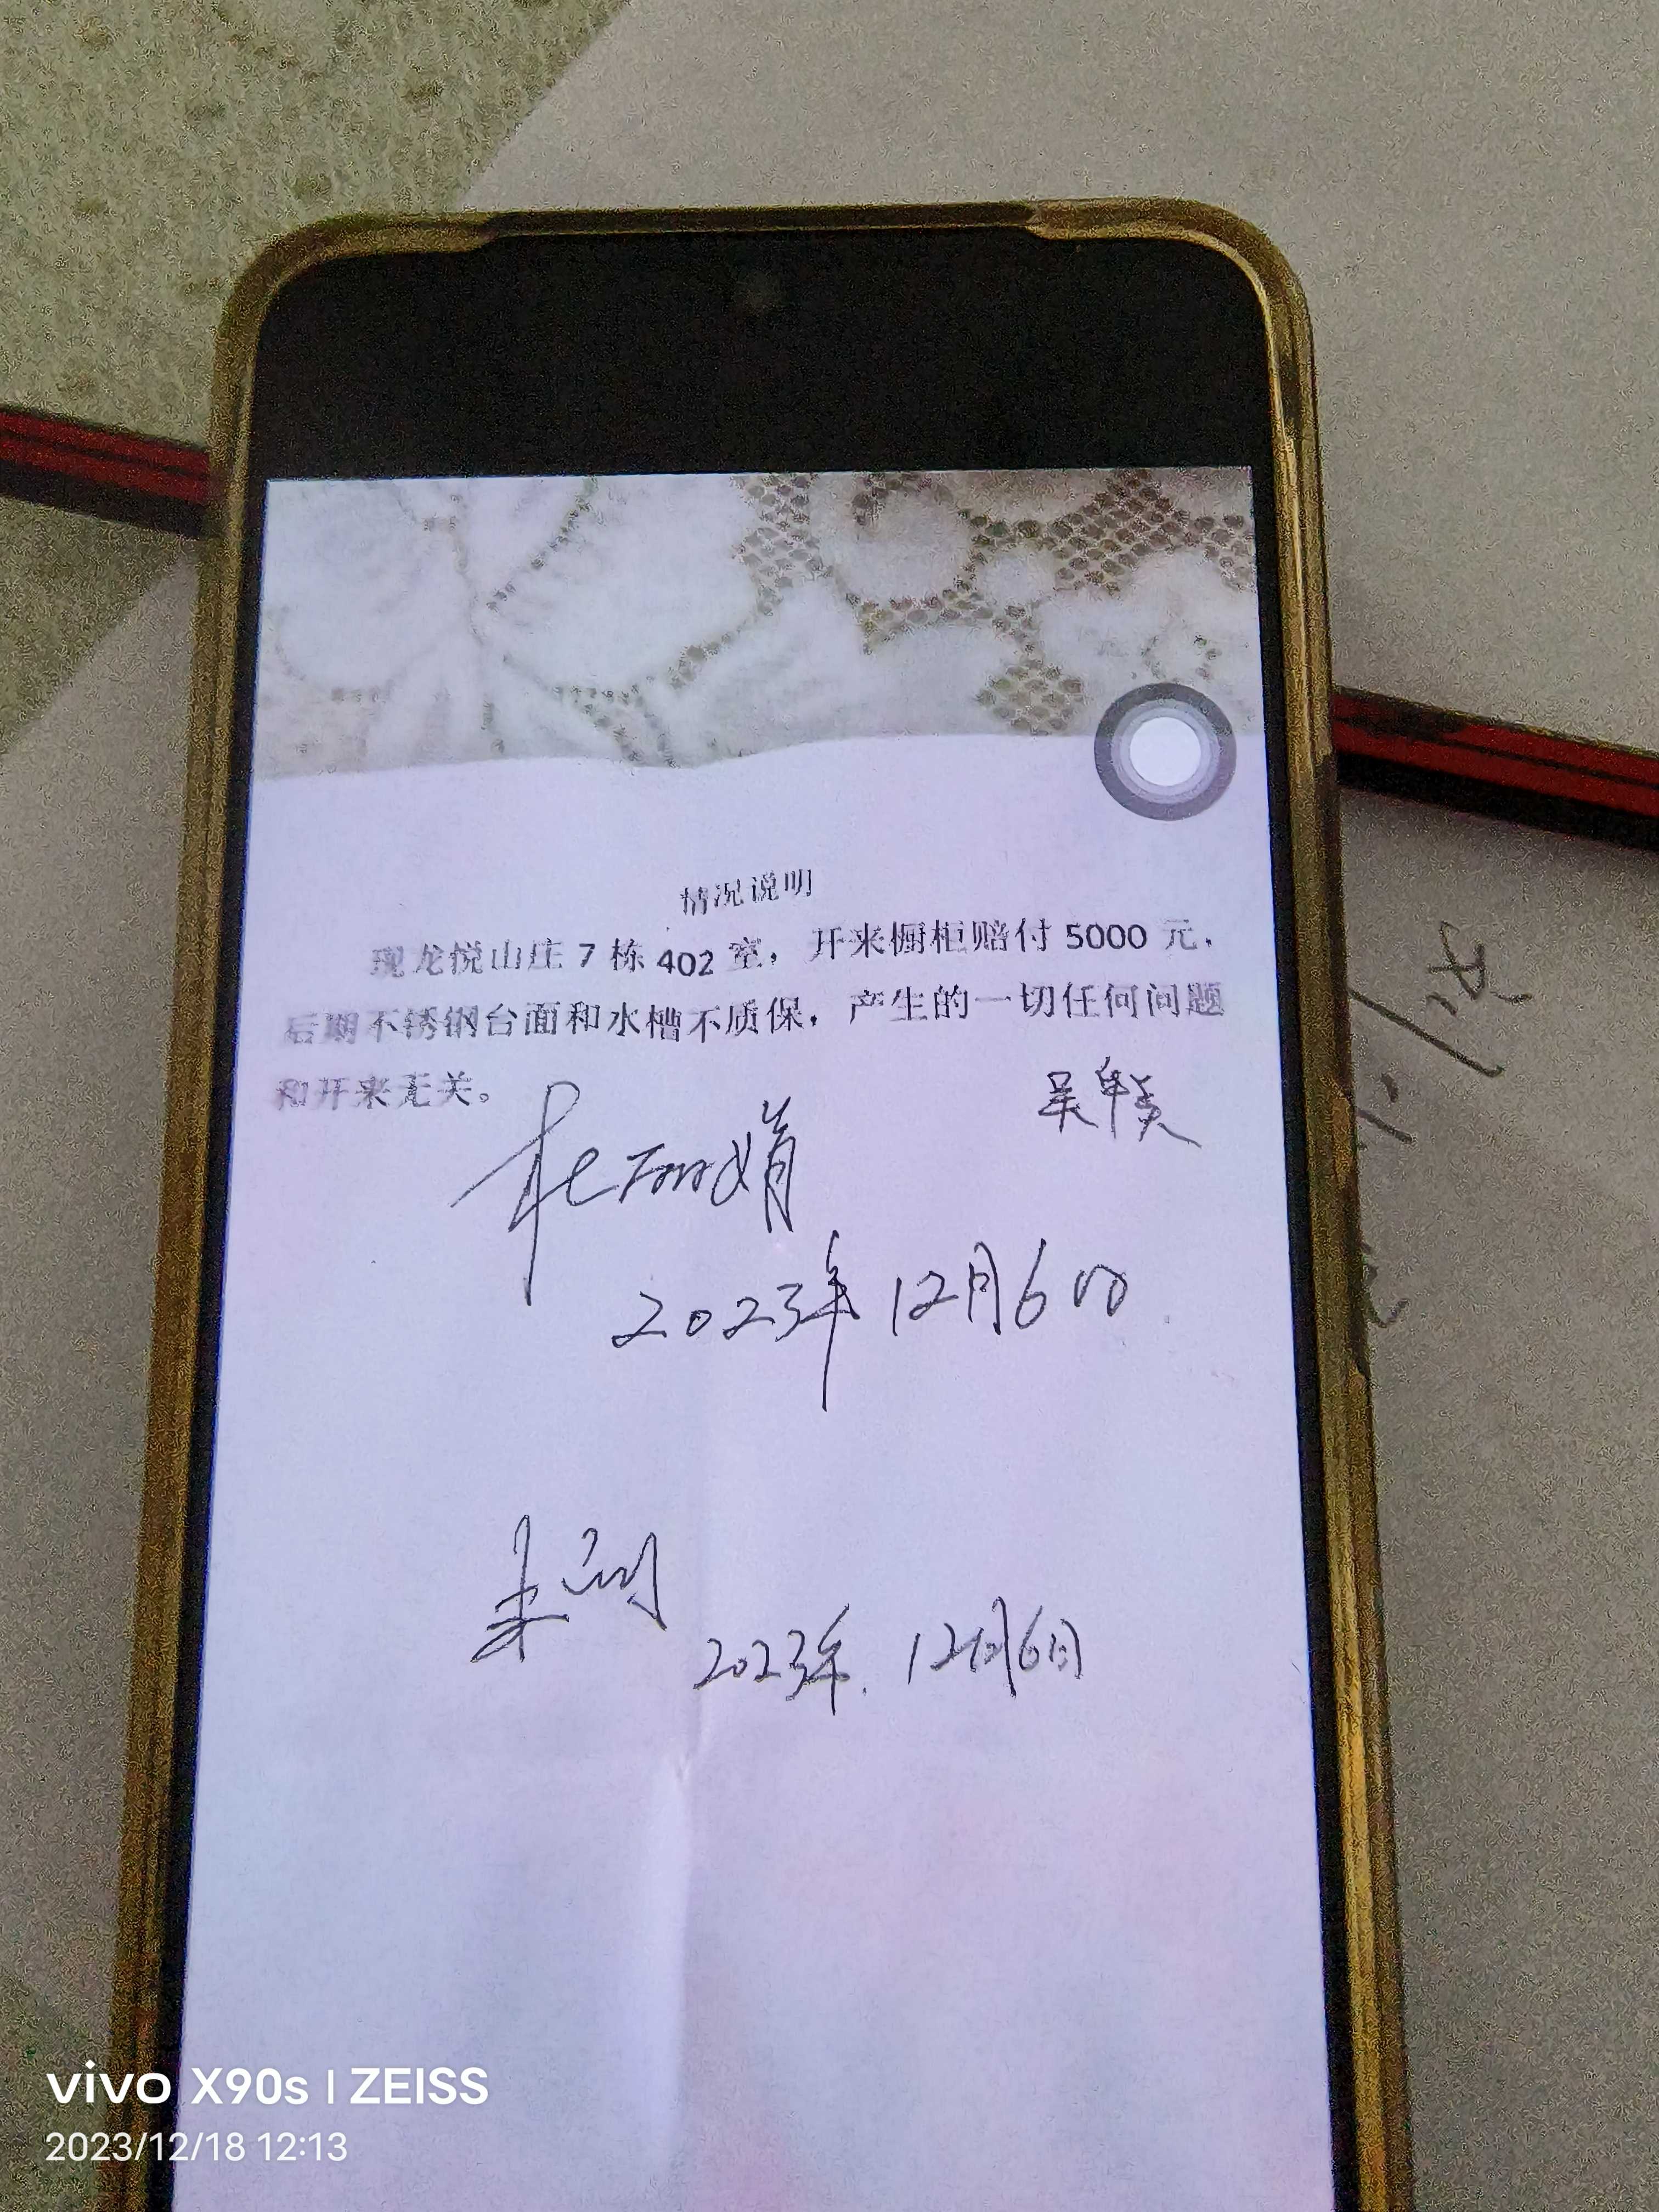 情况说明
现龙悦山庄 7 栋 402 室，开来橱柜赔付 5000 元，
后期不锈钢台面和水槽不质保，产生的一切任何问题
和开来无关。
杜丽娟
2023年12月6日
2023年.12月6日
vivo X90s | ZEISS
2023/12/18 12:13